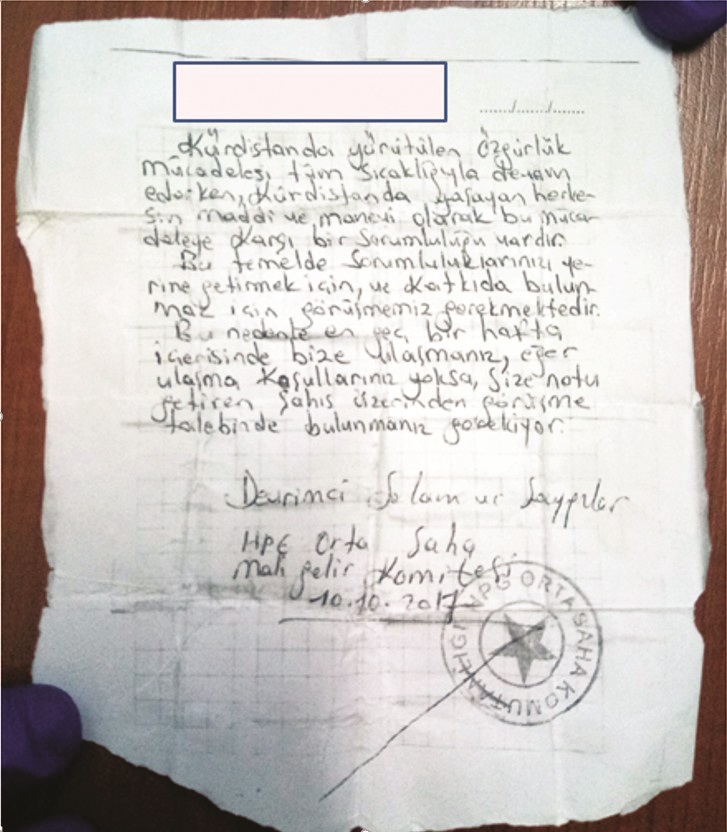 ....../....../......
Kürdistanda yürütülen özgürlük
mücadelesi tüm sıcaklığıyla devam
ederken, Kürdistanda yaşayan herke-
sin maddi ve manevi olarak bu müca-
deleye karşı bir sorumluluğu vardır.
Bu temelde sorumluluklarınızı ye-
rine getirmek için, ve katkıda bulun-
mak için görüşmemiz gerekmektedir.
Bu nedenle en geç bir hafta
içerisinde bize ulaşmanız, eğer
ulaşma koşullarınız yoksa, size notu
getiren şahıs üzerinden görüşme
talebinde bulunmanız gerekiyor.
Devrimci Selam ve Saygılar
HPG Orta Saha
Mali gelir Komitesi
10.10.2017
HPG ORTA SAHA KOMUTANLIĞI